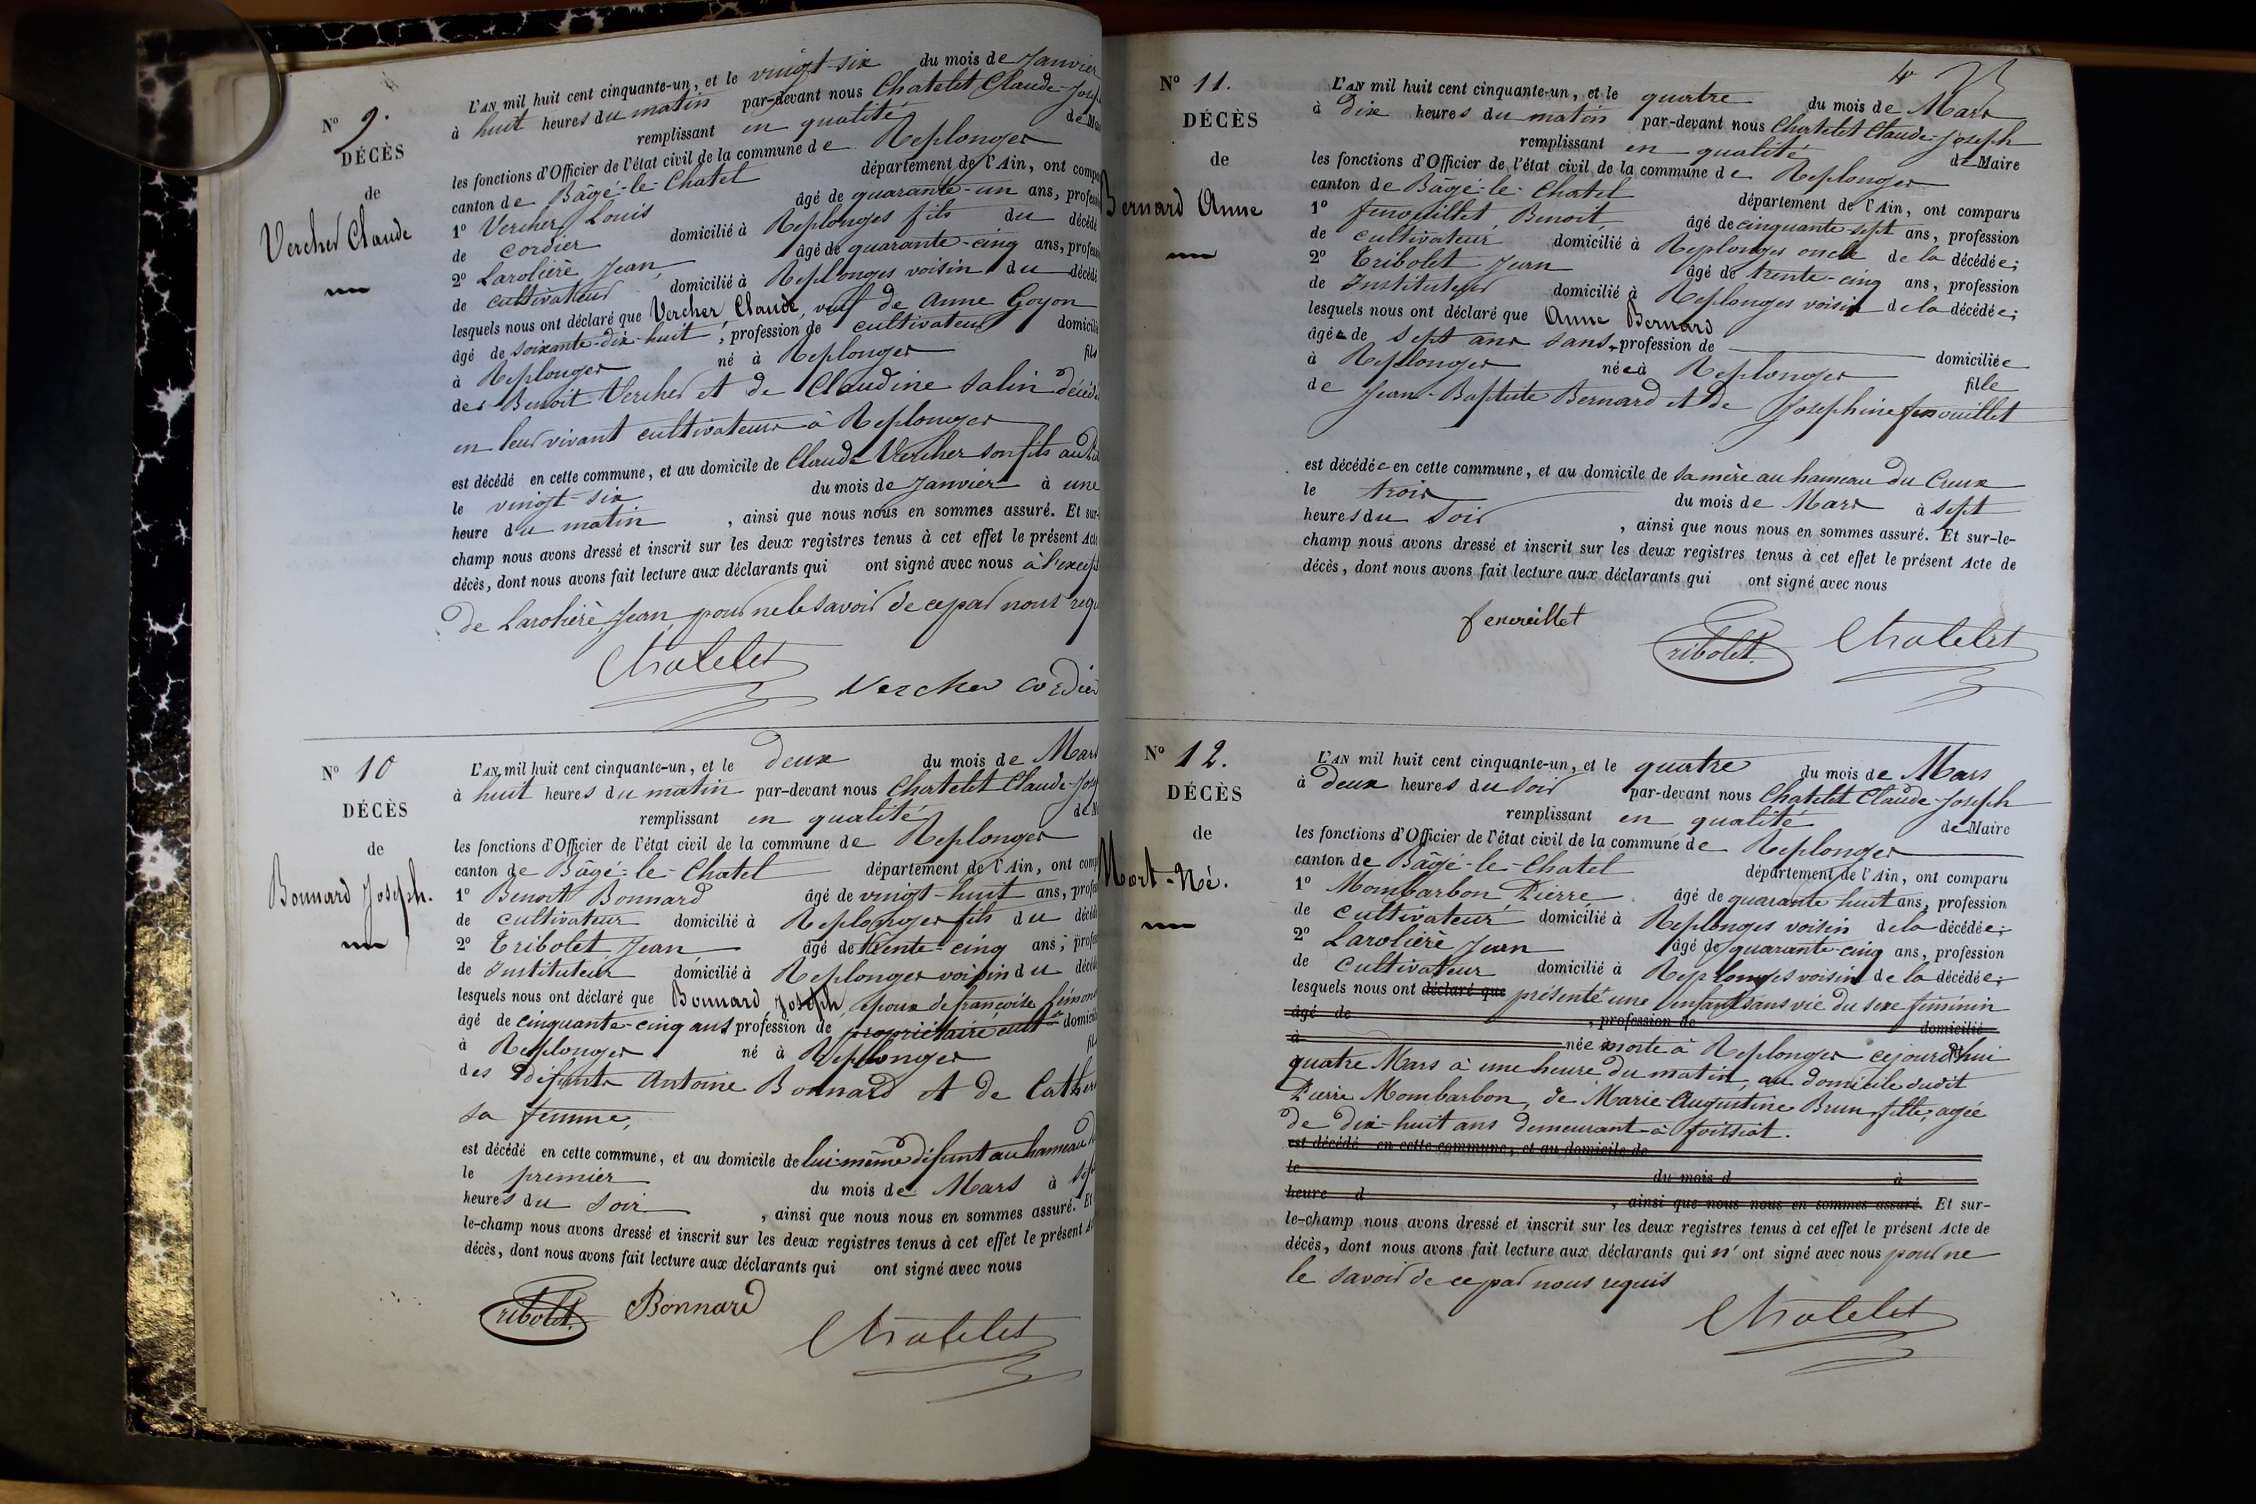 N° 9.
DÉCÈS
de
Vercher Claude
L'AN mil huit cent cinquante-un, et le vingt-six du mois de Janvier
à huit heures du matin par-devant nous Chatelet Claude-Josep
remplissant en qualité de Mai
les fonctions d'Officier de l'état civil de la commune de Replonges
canton de Bâgé-le-Chatel département de l'Ain, ont compa
1° Vercher Louis âgé de quarante-un ans, profess
de cordier domicilié à Replonges fils du décédé
2° Larolière Jean âgé de quarante-cinq ans, profess
de cultivateur domicilié à Replonges voisin du décédé
lesquels nous ont déclaré que Vercher Claude, veuf de Anne Goyon
âgé de soixante-dix-huit, profession de cultivateur domicilié
à Replonges né à Replonges fils
des Benoit Vercher et de Claudine Salin décédé
en leur vivant cultivateurs à Replonges
est décédé en cette commune, et au domicile de Claude Vercher son fils au
le vingt-six du mois de Janvier à une
heure du matin, ainsi que nous nous en sommes assuré. Et sur-
champ nous avons dressé et inscrit sur les deux registres tenus à cet effet le présent Acte
décès, dont nous avons fait lecture aux déclarants qui ont signé avec nous à l'except
de Larolière Jean, pour ne le savoir de ce par nous requ
Chatelet
Vercher cordier
N° 10
DÉCÈS
de
Bonnard Joseph.
L'AN mil huit cent cinquante-un, et le deux du mois de Mars
à huit heures du matin par-devant nous Chatelet Claude-Jose
remplissant en qualité de M
les fonctions d'Officier de l'état civil de la commune de Replonges
canton de Bâgé-le-Chatel département de l'Ain, ont comp
1° Benoit Bonnard âgé de vingt-huit ans, profes
de cultivateur domicilié à Replonges fils du décédé
2° Tribolet Jean âgé de trente-cinq ans, profes
de Instituteur domicilié à Replonges voisin du décédé
lesquels nous ont déclaré que Bonnard Joseph, époux de françoise
âgé de cinquante-cinq ans profession de propriétaire cult domicilié
à Replonges né à Replonges fils
des défunts Antoine Bonnard et de Cather
sa femme,
est décédé en cette commune, et au domicile de lui-même défunt au hameau
le premier du mois de Mars à sept
heures du soir, ainsi que nous nous en sommes assuré. Et
le-champ nous avons dressé et inscrit sur les deux registres tenus à cet effet le présent A
décès, dont nous avons fait lecture aux déclarants qui ont signé avec nous
Tribolet. Bonnard
Chatelet
4
N° 11.
DÉCÈS
de
Bernard Anne
L'AN mil huit cent cinquante-un, et le quatre du mois de Mars
à dix heures du matin par-devant nous Chatelet Claude-Joseph
remplissant en qualité de Maire
les fonctions d'Officier de l'état civil de la commune de Replonges
canton de Bâgé-le-Chatel département de l'Ain, ont comparu
1° fenouillet Benoit âgé de cinquante-sept ans, profession
de cultivateur domicilié à Replonges oncle de la décédée;
2° Tribolet Jean âgé de trente-cinq ans, profession
de Instituteur domicilié à Replonges voisin de la décédée;
lesquels nous ont déclaré que Anne Bernard
âgée de sept ans sans profession de domiciliée
à Replonges née à Replonges fille
de Jean-Baptiste Bernard et de Josephine fenouillet
est décédée en cette commune, et au domicile de sa mère au hameau du Creux
le trois du mois de Mars à sept
heures du soir, ainsi que nous nous en sommes assuré. Et sur-le-
champ nous avons dressé et inscrit sur les deux registres tenus à cet effet le présent Acte de
décès, dont nous avons fait lecture aux déclarants qui ont signé avec nous
fenouillet
Tribolet. Chatelet
N° 12.
DÉCÈS
de
Mort-Né.
L'AN mil huit cent cinquante-un, et le quatre du mois de Mars
à deux heures du soir par-devant nous Chatelet Claude-Joseph
remplissant en qualité de Maire
les fonctions d'Officier de l'état civil de la commune de Replonges
canton de Bâgé-le-Chatel département de l'Ain, ont comparu
1° Mombarbon Pierre âgé de quarante huit ans, profession
de cultivateur domicilié à Replonges voisin de la décédée;
2° Larolière Jean âgé de quarante-cinq ans, profession
de cultivateur domicilié à Replonges voisin de la décédée;
lesquels nous ont déclaré que présenté une enfant sans vie du sexe féminin
âgé de , profession de domicilié
à née morte à Replonges cejourd'hui
quatre Mars à une heure du matin, au domicile dudit
Pierre Mombarbon, de Marie Augustine Brun, fille, agée
de dix-huit ans demeurant à foissiat.
est décédé en cette commune, et au domicile de
le du mois d à
heure d , ainsi que nous nous en sommes assuré. Et sur-
le-champ nous avons dressé et inscrit sur les deux registres tenus à cet effet le présent Acte de
décès, dont nous avons fait lecture aux déclarants qui n'ont signé avec nous pour ne
le savoir de ce par nous requis
Chatelet